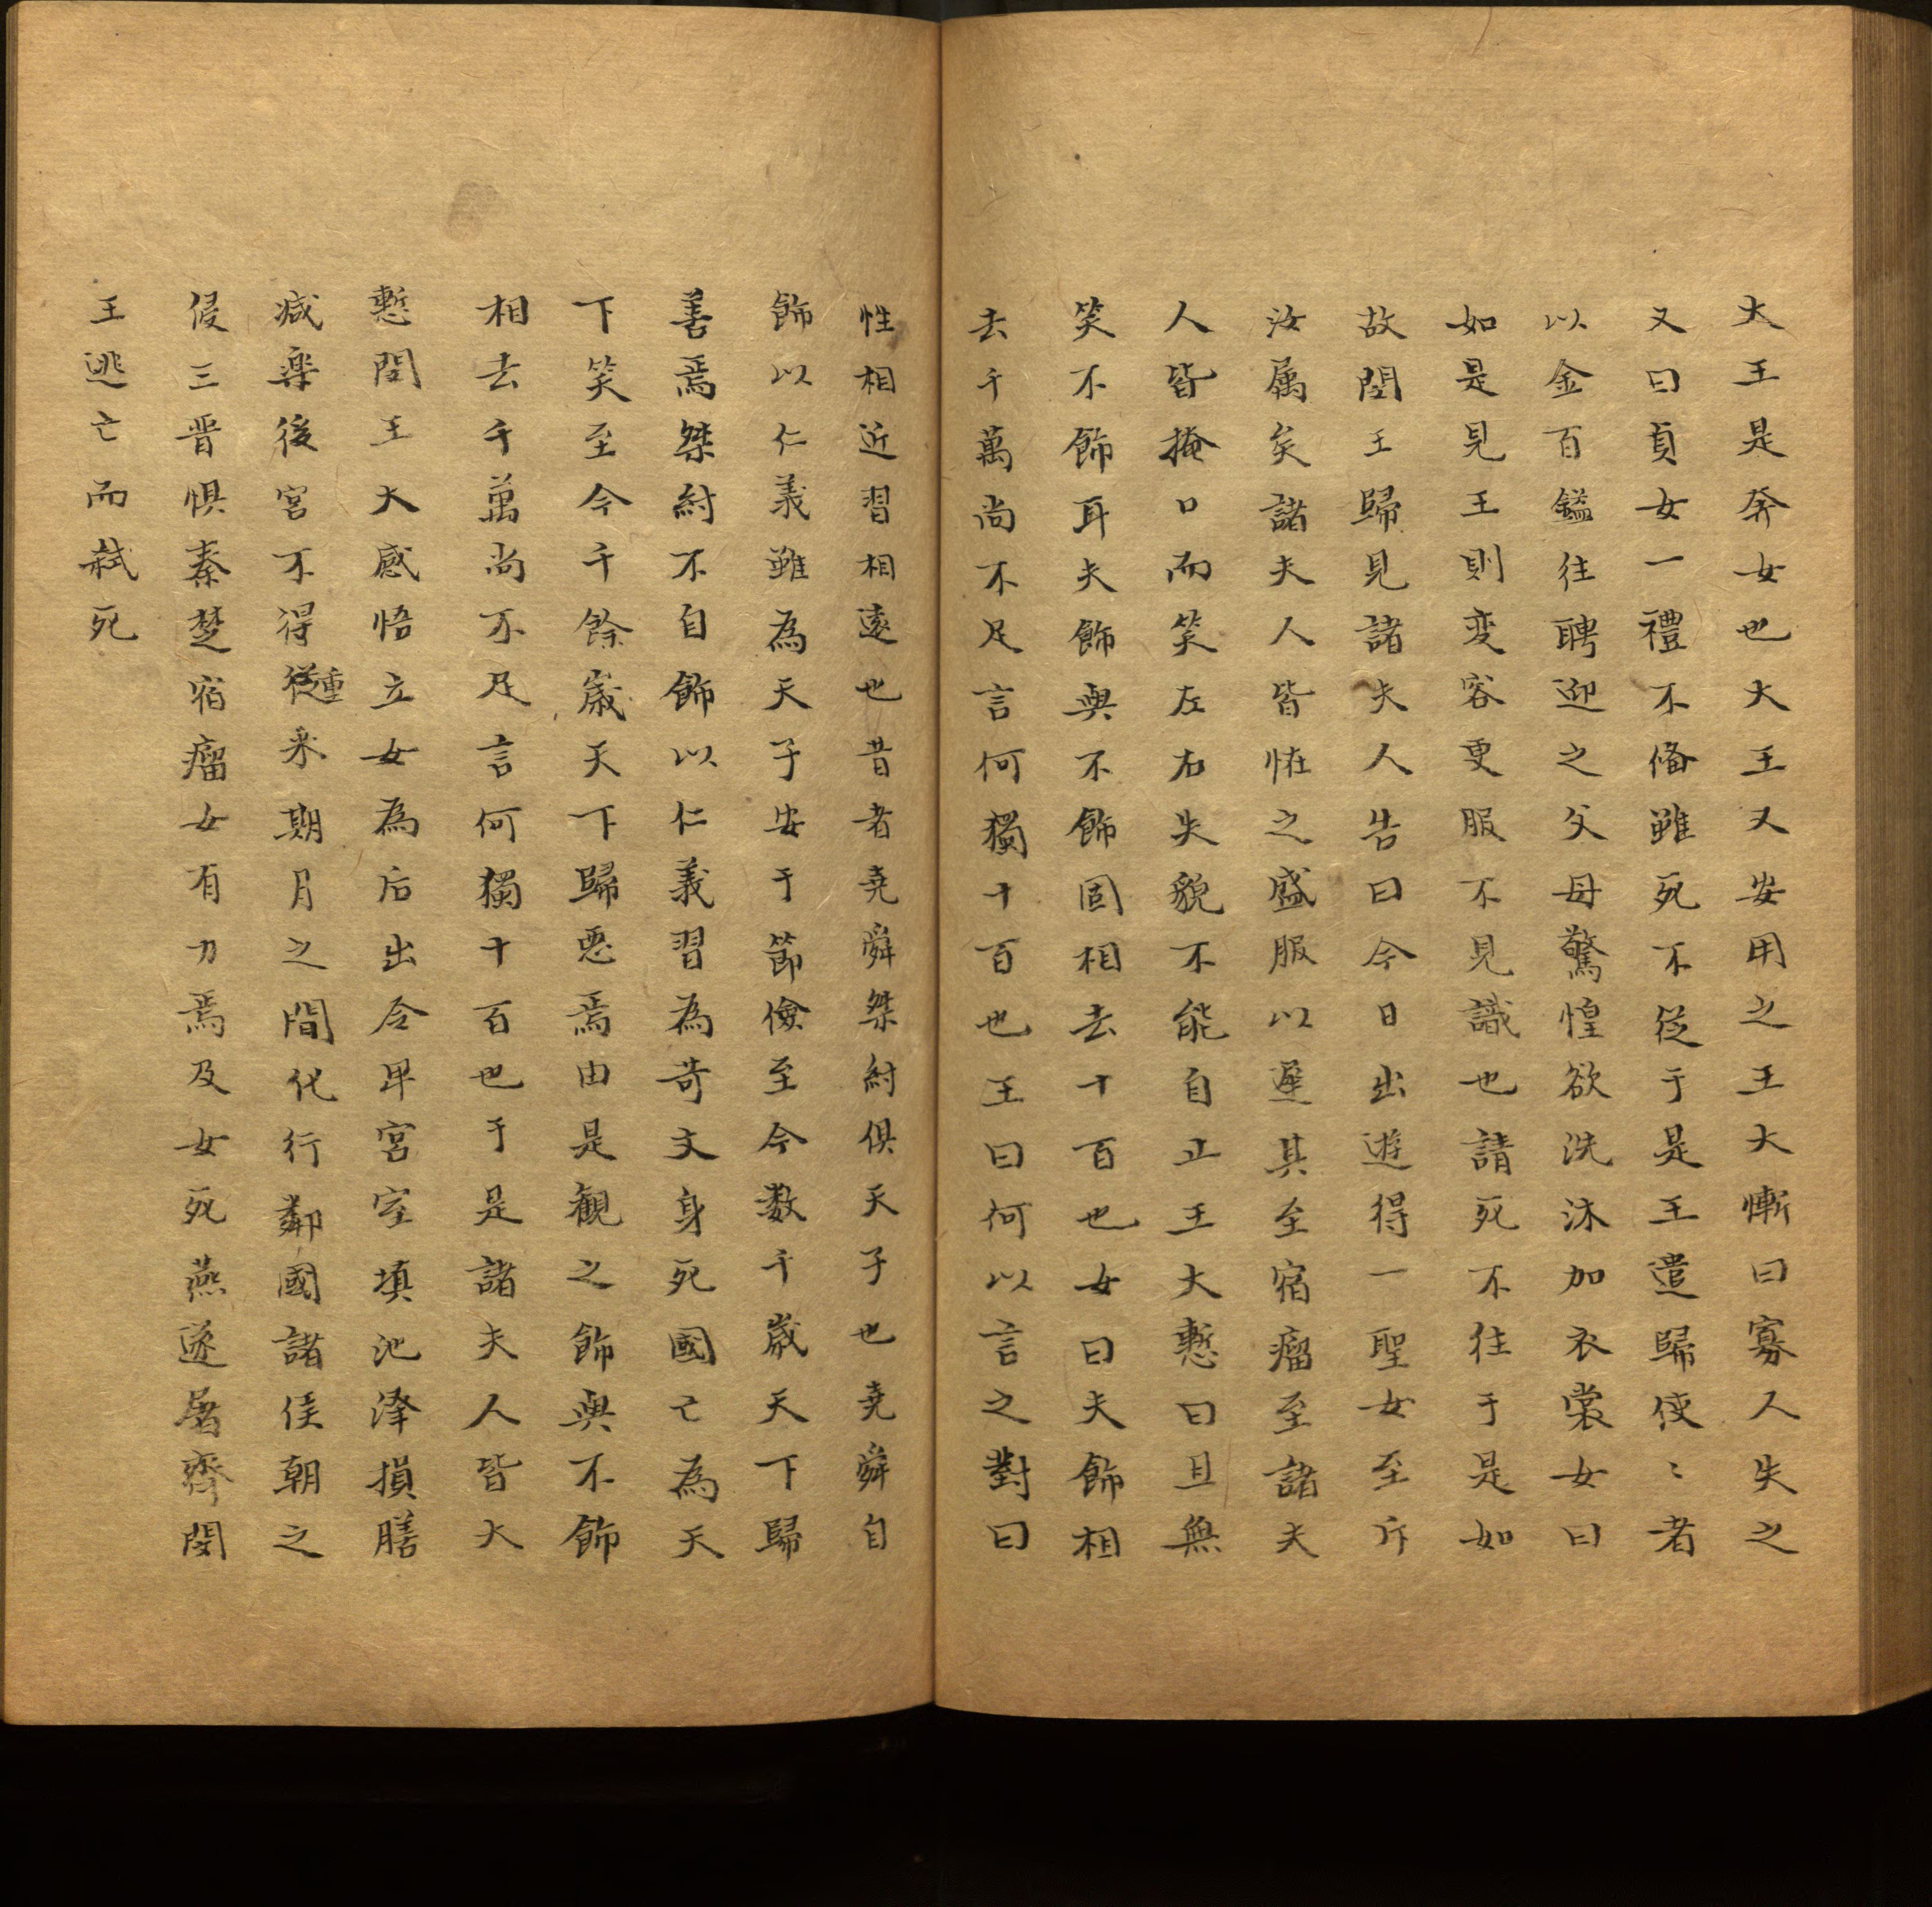 大王是奔女也大王又安用之王大慚曰寡人失之
又曰貞女一禮不備雖死不從于是王遣歸使〻者
以金百鎰往聘迎之父母驚惶欲洗沐加衣裳女曰
如是見王則変容更服不見識也請死不往于是如
故閔王歸見諸夫人告曰今日出遊得一聖女至斥
汝属矣諸夫人皆恠之盛服以遲其至宿瘤至諸夫
人皆掩口而笑左右失貌不能自止王大慙曰且無
笑不飾耳夫飾與不飾固相去十百也女曰夫飾相
去千萬尚不足言何獨十百也王曰何以言之對曰
性相近習相遠也昔者堯舜桀紂俱天子也堯舜自
飾以仁義雖為天子安于節儉至今数千歳天下歸
善焉桀紂不自飾以仁義習為苛文身死國亡為天
下笑至今千餘歳天下歸悪焉由是観之飾與不飾
相去千萬尚不足言何獨十百也于是諸夫人皆大
慙閔王大感悟立女為后出令卑宮室填池澤損膳
減楽後宮不得重采期月之間化行鄰國諸侯朝之
侵三晋惧秦楚宿瘤女有力焉及女死燕遂屠齊閔
王逃亡而弒死